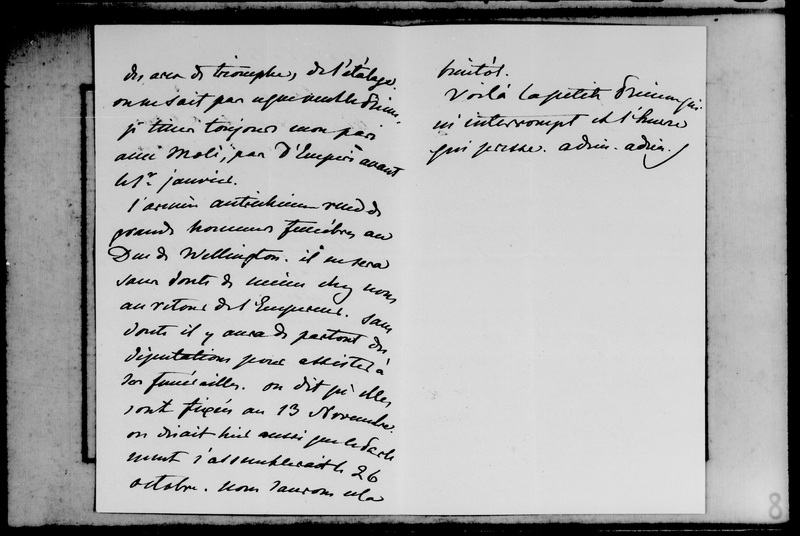 des arcs de triomphe, de l'étalage.
on ne sait pas
je tiens toujours mon pari
avec Molé, pas d'Empire avant
le 1er janvier.
l'armée autrichienne rend de
grands honneurs funèbres au
Duc de Wellington. il en sera
sans doute de même chez nous
au retour de l'Empereur. sans
doute il y aura de partout des
députations pour assister à
ses funérailles. on dit qu'elles
sont fixées au 13 Novembre.
on disait hier aussi que le Parle
ment s'assemblerait le 26
octobre. nous saurons cela
bientôt.
Voilà la petite Princesse qui
m'interrompt et l'heure
qui presse. adieu. adieu.
8